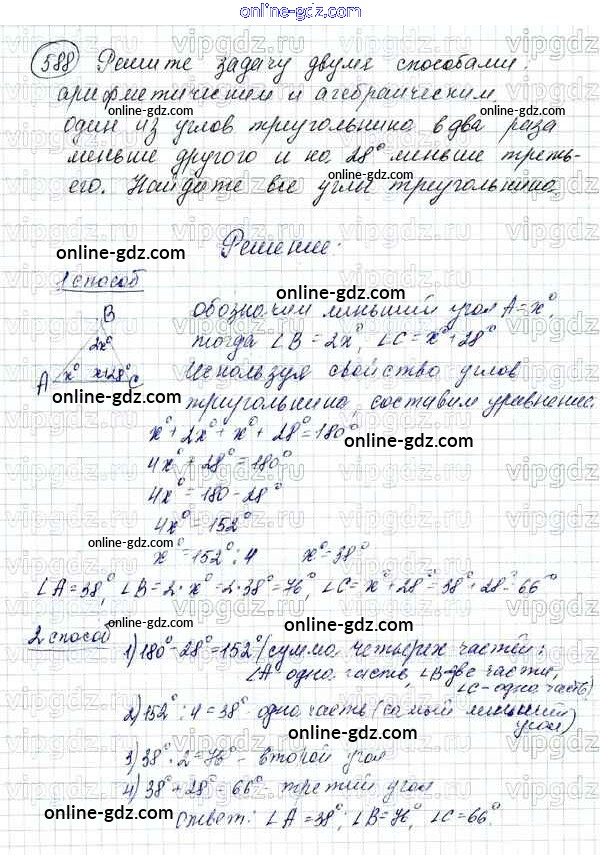 online-gdz.com
588 Решите задачу двумя способами:
арифметическим и агебраическим
один из углов треугольника в два раза
меньше другого и на 28° меньше треть-
его. Найдите все углы треугольника.
online-gdz.com
Решение.
online-gdz.com
1 способ
B
2x°
A x° x+28° C
обозначим меньший угол A = x°,
тогда ∠B = 2x°, ∠C = x° + 28°
Используя свойство углов
треугольника, составим уравнение.
online-gdz.com
x° + 2x° + x° + 28° = 180°
4x° + 28° = 180°
4x° = 180 - 28°
4x° = 152°
x° = 152° : 4 x° = 38°
∠A = 38°, ∠B = 2·x° = 2·38° = 76°, ∠C = x° + 28° = 38° + 28° = 66°
online-gdz.com
2 способ
1) 180° - 28° = 152° (сумма четырех частей:
∠A одна часть, ∠B - две части,
∠C - одна часть)
2) 152° : 4 = 38° одна часть (самый меньший
угол)
3) 38° · 2 = 76° - второй угол
4) 38° + 28° = 66° - третий угол
Ответ: ∠A = 38°, ∠B = 76°, ∠C = 66°.
online-gdz.com
vipgdz.ru